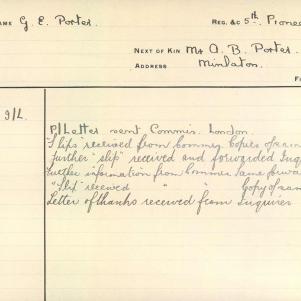 AME G. E. Porter. REG. &C 5th. Pionee
NEXT OF KIN Mr A. B. Porter.
ADDRESS Minlaton.
F
9/L. P/Letter sent Commis. London.
"Slips" received from Commrs. Copies of sam
Further "slip" received and forwarded Inqu
Further information from Commrs. same forwar
"Slip" received " " Copy of sam
Letter of thanks received from Inquirer